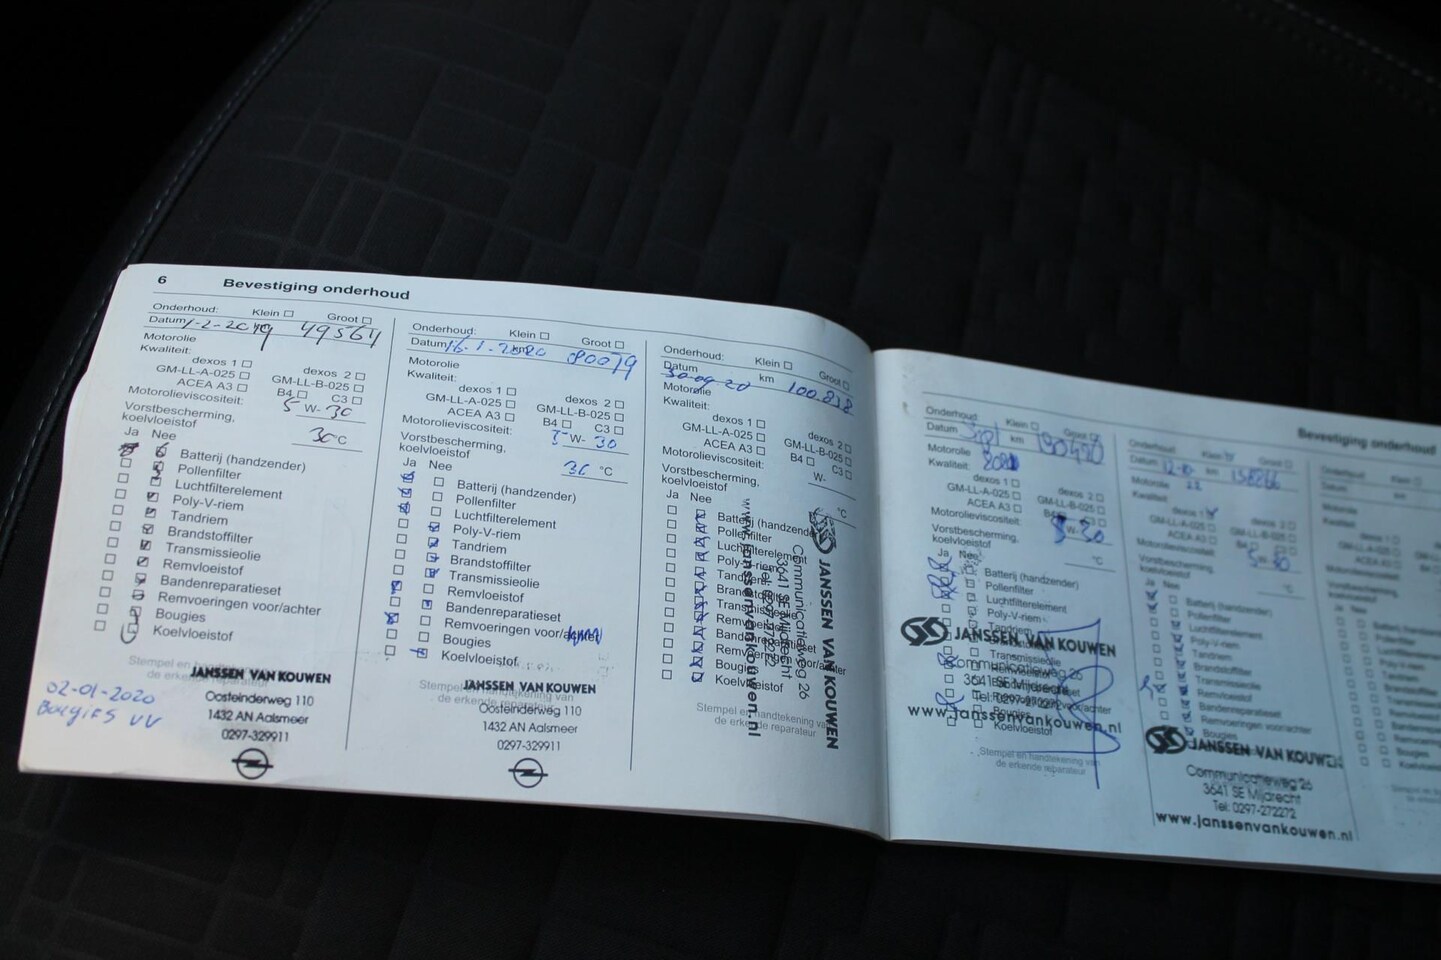 6 Bevestiging onderhoud
Onderhoud: Klein Groot
Datum 1-2-2019 49564
Motorolie
Kwaliteit:
dexos 1 dexos 2
GM-LL-A-025 GM-LL-B-025
ACEA A3 B4 C3
Motorolieviscositeit: 5 W- 30
Vorstbescherming,
koelvloeistof 30 °C
Ja Nee
Batterij (handzender)
Pollenfilter
Luchtfilterelement
Poly-V-riem
Tandriem
Brandstoffilter
Transmissieolie
Remvloeistof
Bandenreparatieset
Remvoeringen voor/achter
Bougies
Koelvloeistof
Stempel en handtekening van
de erkende reparateur
JANSSEN VAN KOUWEN
Oosteinderweg 110
1432 AN Aalsmeer
0297-329911
02-01-2020
Bougies VV
Onderhoud: Klein Groot
Datum 16-1-2020 km 80079
Motorolie
Kwaliteit:
dexos 1 dexos 2
GM-LL-A-025 GM-LL-B-025
ACEA A3 B4 C3
Motorolieviscositeit: 5 W- 30
Vorstbescherming,
koelvloeistof 36 °C
Ja Nee
Batterij (handzender)
Pollenfilter
Luchtfilterelement
Poly-V-riem
Tandriem
Brandstoffilter
Transmissieolie
Remvloeistof
Bandenreparatieset
Remvoeringen voor/achter
Bougies
Koelvloeistof
Stempel en handtekening van
de erkende reparateur
JANSSEN VAN KOUWEN
Oosteinderweg 110
1432 AN Aalsmeer
0297-329911
Onderhoud: Klein Groot
Datum 30-09-20 km 100.838
Motorolie
Kwaliteit:
dexos 1 dexos 2
GM-LL-A-025 GM-LL-B-025
ACEA A3 B4 C3
Motorolieviscositeit: W-
Vorstbescherming,
koelvloeistof °C
Ja Nee
Batterij (handzender)
Pollenfilter
Luchtfilterelement
Poly-V-riem
Tandriem
Brandstoffilter
Transmissieolie
Remvloeistof
Bandenreparatieset
Remvoeringen voor/achter
Bougies
Koelvloeistof
Stempel en handtekening van
de erkende reparateur
JANSSEN VAN KOUWEN
Communicatieweg 26
3641 SE Mijdrecht
Tel: 0297-272272
www.janssenvankouwen.nl
Bevestiging onderhoud
Onderhoud: Klein Groot
Datum km
Motorolie
Kwaliteit:
dexos 1 dexos 2
GM-LL-A-025 GM-LL-B-025
ACEA A3 B4 C3
Motorolieviscositeit: 5 W- 30
Vorstbescherming,
koelvloeistof °C
Ja Nee
Batterij (handzender)
Pollenfilter
Luchtfilterelement
Poly-V-riem
Tandriem
Transmissieolie
Bougies
Koelvloeistof
Stempel en handtekening van
de erkende reparateur
JANSSEN VAN KOUWEN
Communicatieweg 26
3641 SE Mijdrecht
Tel: 0297-272272
www.janssenvankouwen.nl
Onderhoud: Klein Groot
Datum 12-10 km
Motorolie 22
Kwaliteit:
dexos 1 dexos 2
GM-LL-A-025 GM-LL-B-025
ACEA A3
Motorolieviscositeit: W- 30
Vorstbescherming,
koelvloeistof °C
Ja Nee
Batterij (handzender)
Pollenfilter
Luchtfilterelement
Poly-V-riem
Tandriem
Brandstoffilter
Transmissieolie
Remvloeistof
Bandenreparatieset
Remvoeringen voor/achter
Bougies
JANSSEN VAN KOUWEN
Communicatieweg 26
3641 SE Mijdrecht
Tel: 0297-272272
www.janssenvankouwen.nl
Onderhoud: Klein
Datum km
Motorolie
Kwaliteit